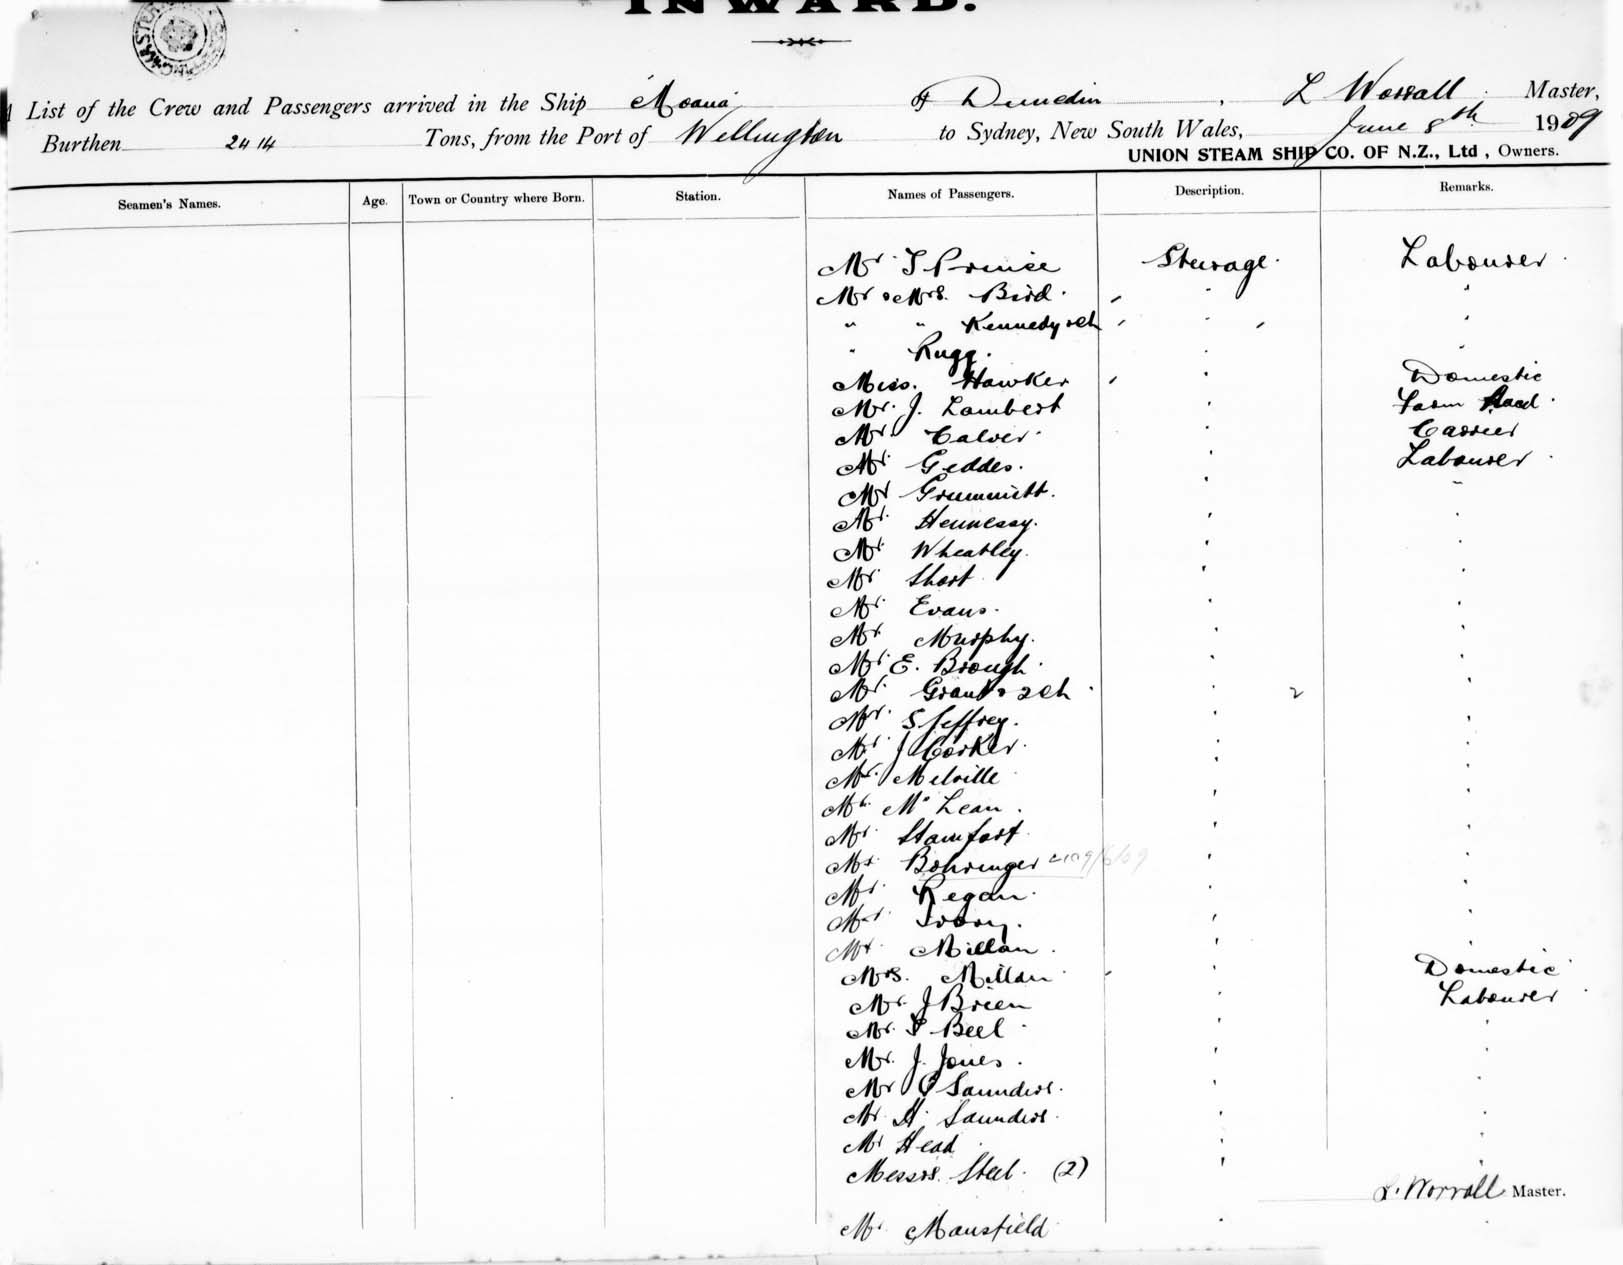 INWARD.
A List of the Crew and Passengers arrived in the Ship Moana of Dunedin, L Worrall Master,
Burthen 2414 Tons, from the Port of Wellington to Sydney, New South Wales, June 8th 1909
UNION STEAM SHIP CO. OF N.Z., Ltd, Owners.
Seamen's Names. Age. Town or Country where Born. Station. Names of Passengers. Description. Remarks.
Mr Prince Steerage. Labourer
Mr & Mrs. Bird. " "
" " Kennedy & ch " "
" Rugg. " "
Miss. Hawker " Domestic
Mr. J. Lambert " Farm Hand.
Mr. Calver " Carrier
Mr. Geddes. " Labourer
Mr Grummitt. " "
Mr. Hennessy. " "
Mr. Wheatley. " "
Mr Short " "
Mr. Evans. " "
Mr. Murphy. " "
Mr. E. Brough. " "
Mr. Grant & 2 ch. " 2 "
Mr. S Jeffrey. " "
Mr. J Corker. " "
Mr. Melville " "
Mr. Mc Lean. " "
Mr. Stamfort " "
Mr. Bohringer 9/6/09 " "
Mr. Regan. " "
Mr. Ivory. " "
Mr. Millan. " "
Mrs. Millan " Domestic
Mr. J Brien " Labourer
Mr. Beel " "
Mr. J. Jones. " "
Mr Saunders. " "
Mr. H. Saunders. " "
Mr Head " "
Messrs. Steel. (2) "
L. Worrall Master.
Mr. Mansfield "